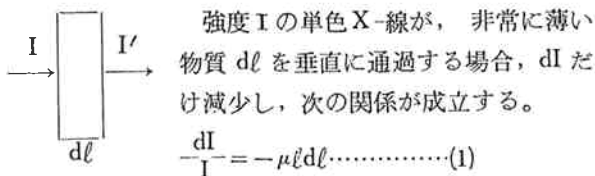 I
I′
dℓ
強度Iの単色X-線が, 非常に薄い
物質 dℓ を垂直に通過する場合, dI だ
け減少し, 次の関係が成立する。
dI
─ = −μℓdℓ……………(1)
I